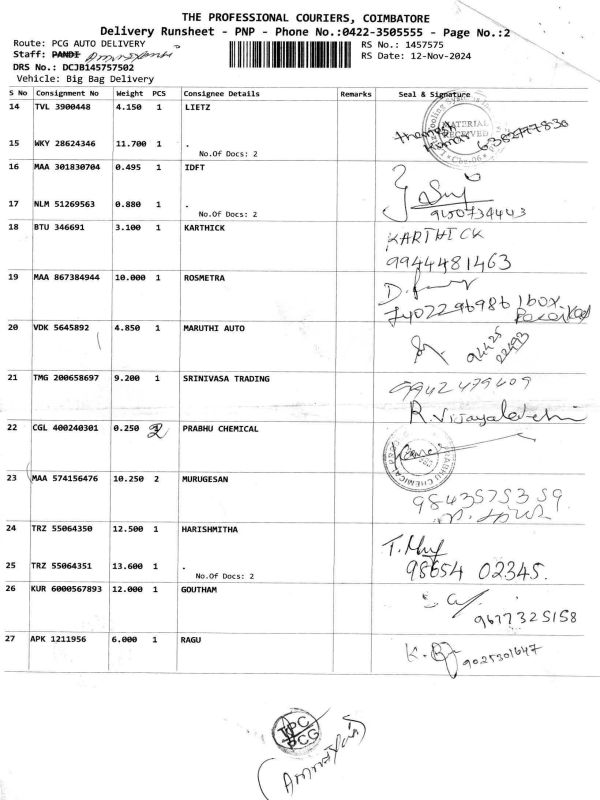 THE PROFESSIONAL COURIERS, COIMBATORE
Delivery Runsheet - PNP - Phone No.:0422-3505555 - Page No.:2
Route: PCG AUTO DELIVERY
RS No.: 1457575
Staff: PANDI
RS Date: 12-Nov-2024
DRS No.: DCJB145757502
Vehicle: Big Bag Delivery
S No Consignment No Weight PCS Consignee Details Remarks Seal & Signature
14 TVL 3900448 4.150 1 LIETZ
MATERIAL RECEIVED
15 WKY 28624346 11.700 1 .
No.Of Docs: 2
16 MAA 301830704 0.495 1 IDFT
17 NLM 51269563 0.880 1 . 9150734443
No.Of Docs: 2
18 BTU 346691 3.100 1 KARTHICK KARTHICK
9944481463
19 MAA 867384944 10.000 1 ROSMETRA
7402296986 1 box
Received
20 VDK 5645892 4.850 1 MARUTHI AUTO 94425
22493
21 TMG 200658697 9.200 1 SRINIVASA TRADING 9942479609
R. Vijayalakshmi
22 CGL 400240301 0.250 2 PRABHU CHEMICAL
PRABHU CHEMICAL
23 MAA 574156476 10.250 2 MURUGESAN
9843575359
24 TRZ 55064350 12.500 1 HARISHMITHA
25 TRZ 55064351 13.600 1 . 98654 02345.
No.Of Docs: 2
26 KUR 6000567893 12.000 1 GOUTHAM
9677325158
27 APK 1211956 6.000 1 RAGU 9025301647
TPC
PCG